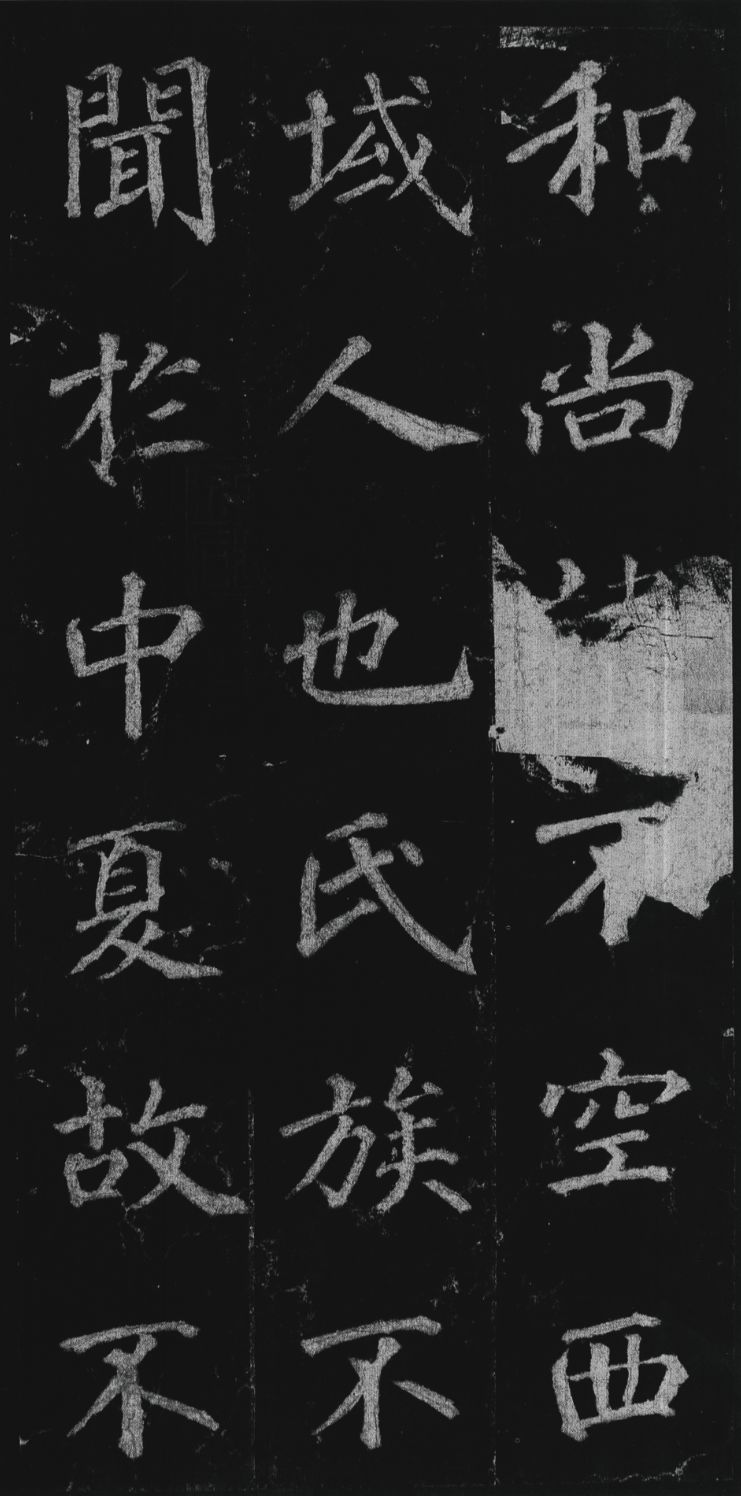 和尚不空西
域人也氏族不
聞於中夏故不